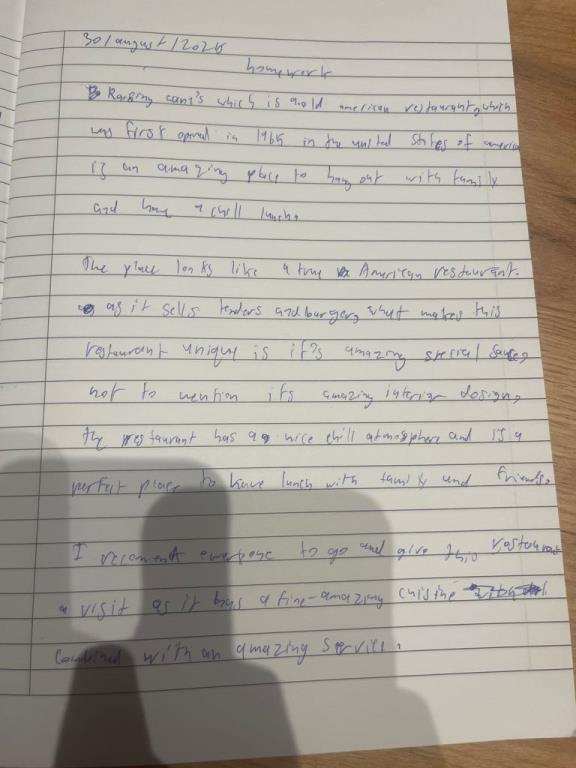 30/august/2025
homework
Raising cane's which is an old american restaurant, which
was first opened in 1965 in the united states of america
is an amazing place to hang out with family
and have a chill lunch.
The place looks like a true American restaurant.
as it sells tenders and burgers, what makes this
restaurant unique is it's amazing special sauce,
not to mention its amazing interior design,
the restaurant has a nice chill atmosphere and is a
perfect place to have lunch with family and friends.
I recomment everyone to go and give this restaurant
a visit as it has a fine-amazing cuisine
combined with an amazing service.